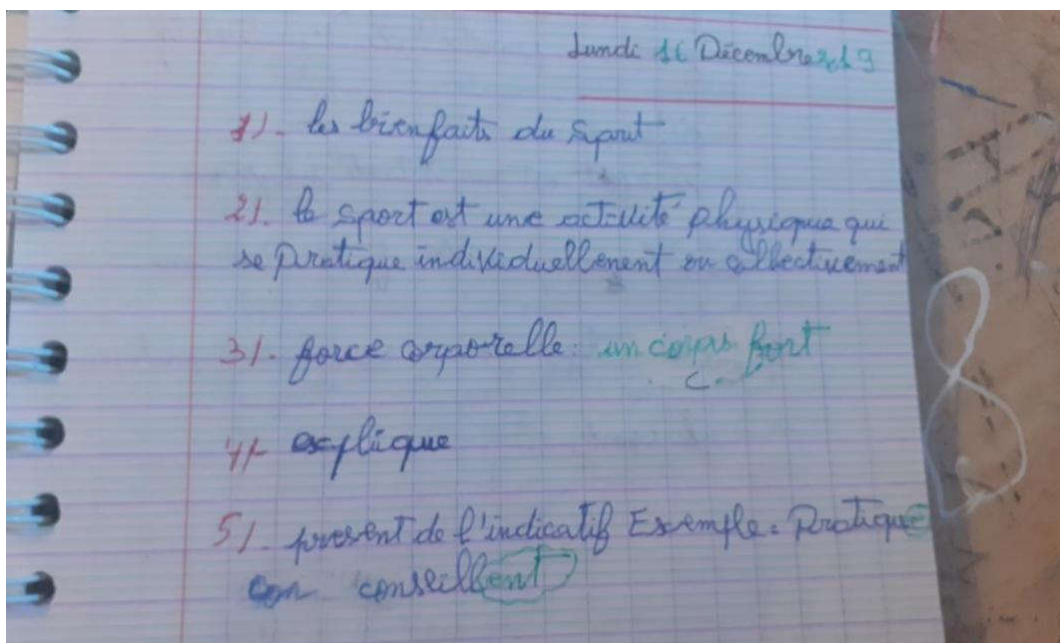 Lundi 16 Décembre 2019
1). les bienfaits du sport
2). le sport est une activité physique qui
se pratique individuellenent ou collectivement
3). force corporelle: un corps fort
4). explique
5). present de l'indicatif Exemple: Pratique
conseillent